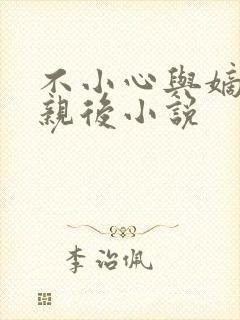 不小心與嫡
親後小説
李治佩